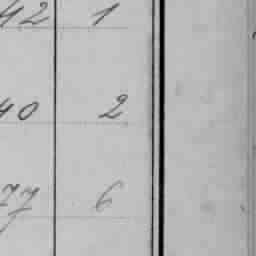 42 1
40 2
77 6